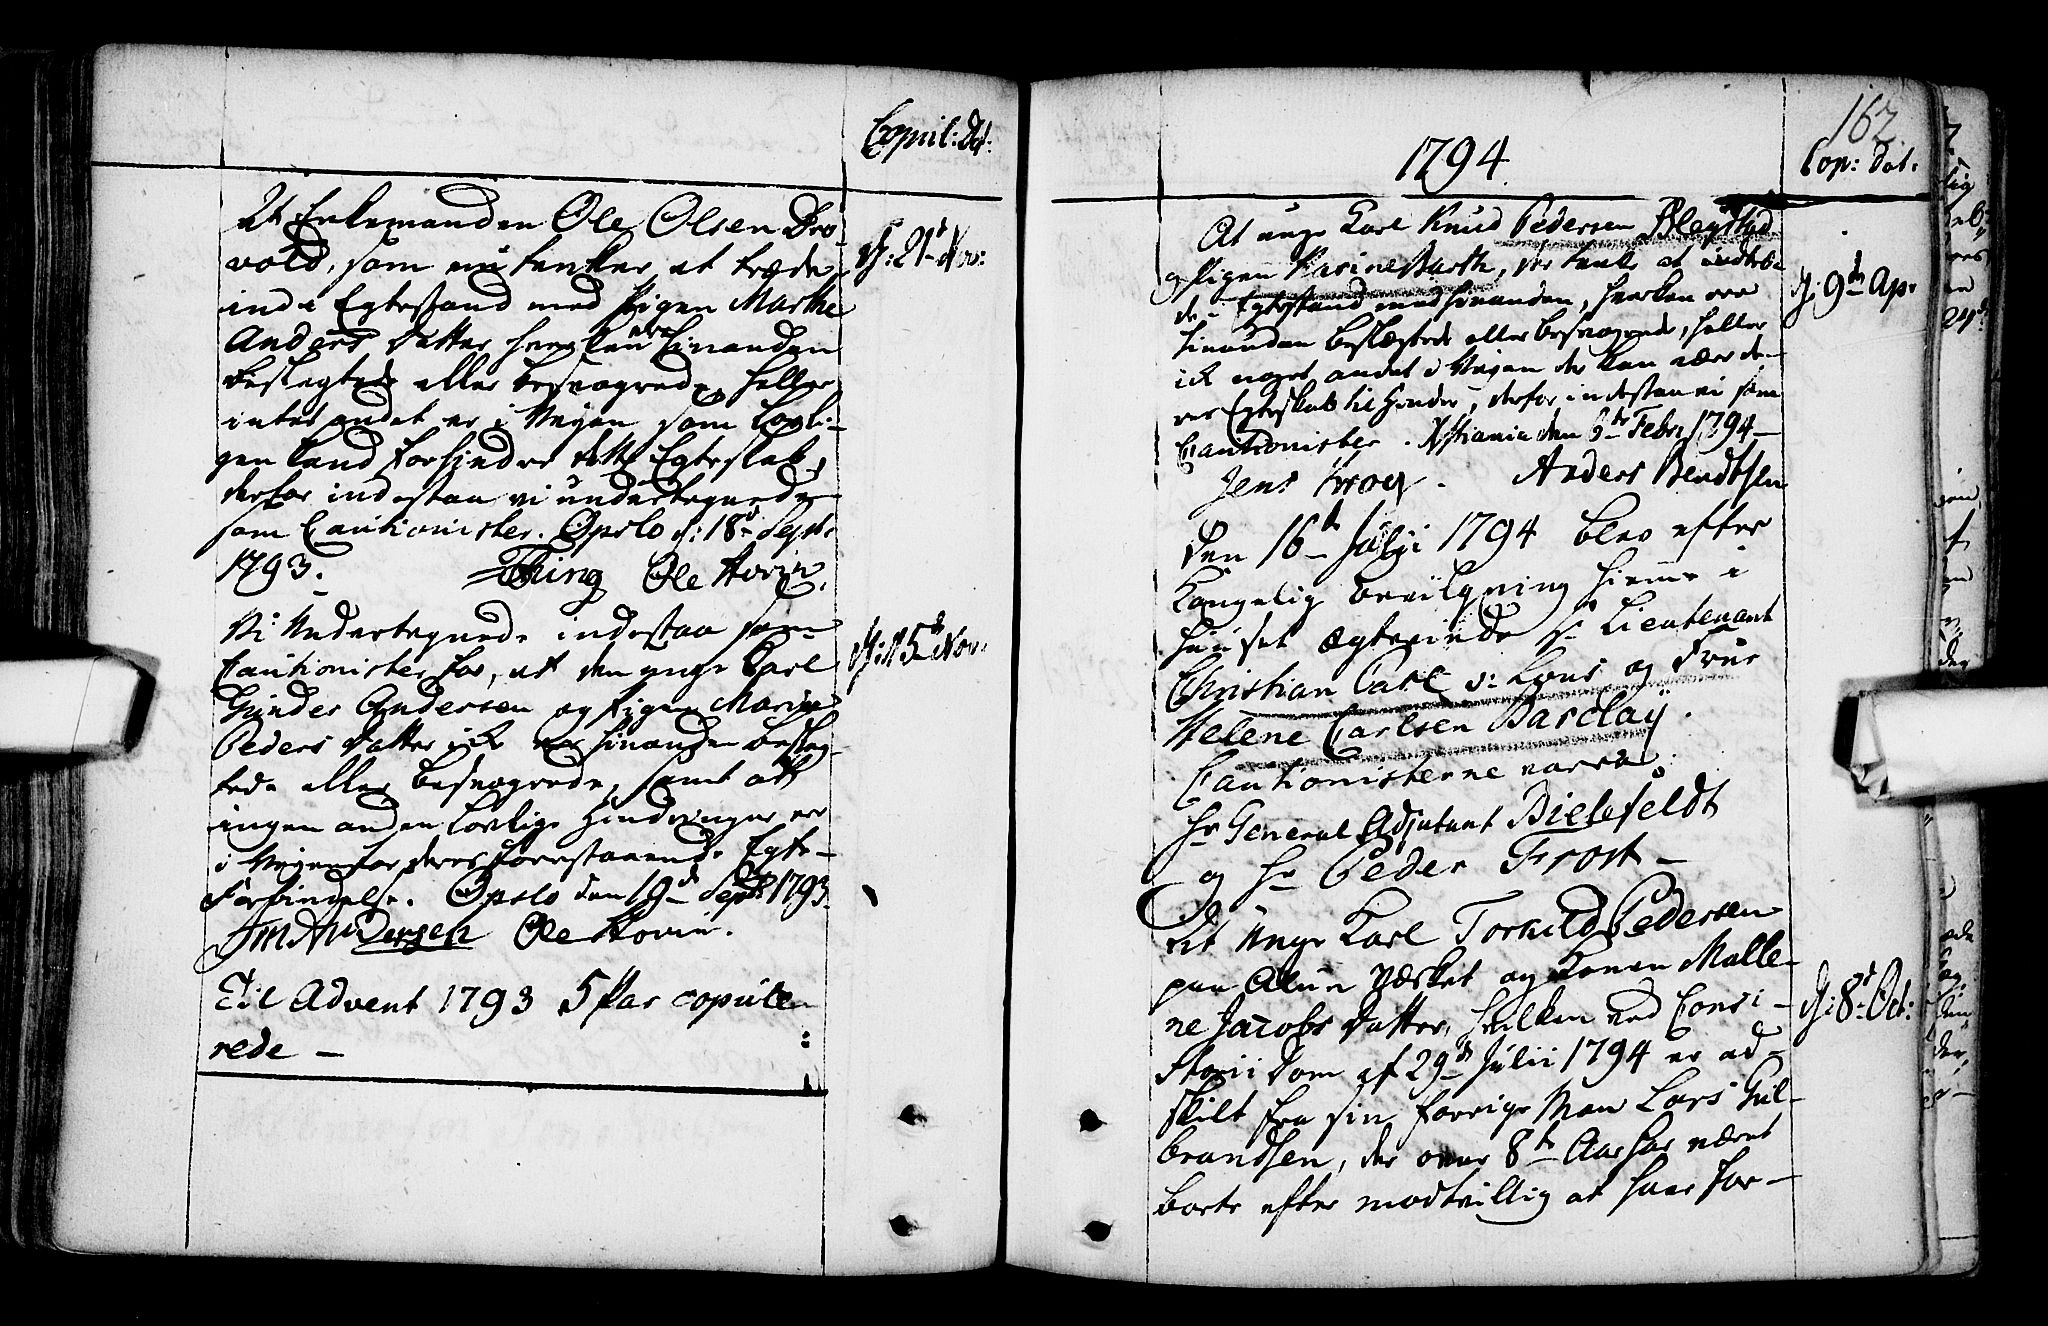 Copul: Dat:
At Enkemanden Ole Olsen Bro-
vold, som nu tenker at træde
ind i Egtestand med Pigen Marthe
Anders Datter hverken ere hinanden
beslegtede eller besvogrede, heller
intet andet er i Vejen som lovli-
gen kand forhindre dette Egteskab,
derfor indestaa vi undertegnede
som Cautionister. Opslo d: 18d Septr
1793. Thüng Ole Hovin.
d: 21d Nov:
Vi Undertegnede indestaa som
Cautionister for, at den unge Carl
Gunder Andersen og Pigen Marie
Peders Datter ick er hinanden besleg-
tede eller besvogrede, samt at
ingen anden lovlige Hindringer er
i Vejen for deres forestaaende Egte-
Forbindelse. Opslo den 19d Septr 1793.
Jm Andersen Ole Hovin.
d: 15d Nov:
Til Advent 1793 5 Par copule-
rede —
162
1794
Cop: Dat:
At unge Karl Knud Pedersen Bleystad
og Pigen Karine Barth, der tænke at indtræ-
de i Egtestand med hinanden, hverken ere
hinanden beslægtede eller besvogrede, heller
ick noget andet i Vejen der kan være de-
res Egteskab til Hinder, derfor indestaa vi som
Cautionister. Xstiania den 6te Febr 1794 —
Jens Krog. Anders Bendtsen
d: 9de Ap:
Den 16de Julji 1794 blev efter
Kongelig bevilgning hiemme i
Huuset ægteviede Hr Lieutenant
Christian Carl v: Lous og Frue
Helene Carlsen Barclay.
Cautionisterne vare:
Hr General Adjutant Bielefeldt
og Hr Peder Frost —
At Unge Karl Torkild Pedersen
paa Alun Værket og Konen Malle-
ne Jacobs Datter, hvilken ved Consi-
storii Dom af 29de Julii 1794 er ad-
skilt fra sin forrige Man Lars Gul-
brandsen, der over 8te Aar har været
borte efter modtvillig at have for-
d: 8d Oct: